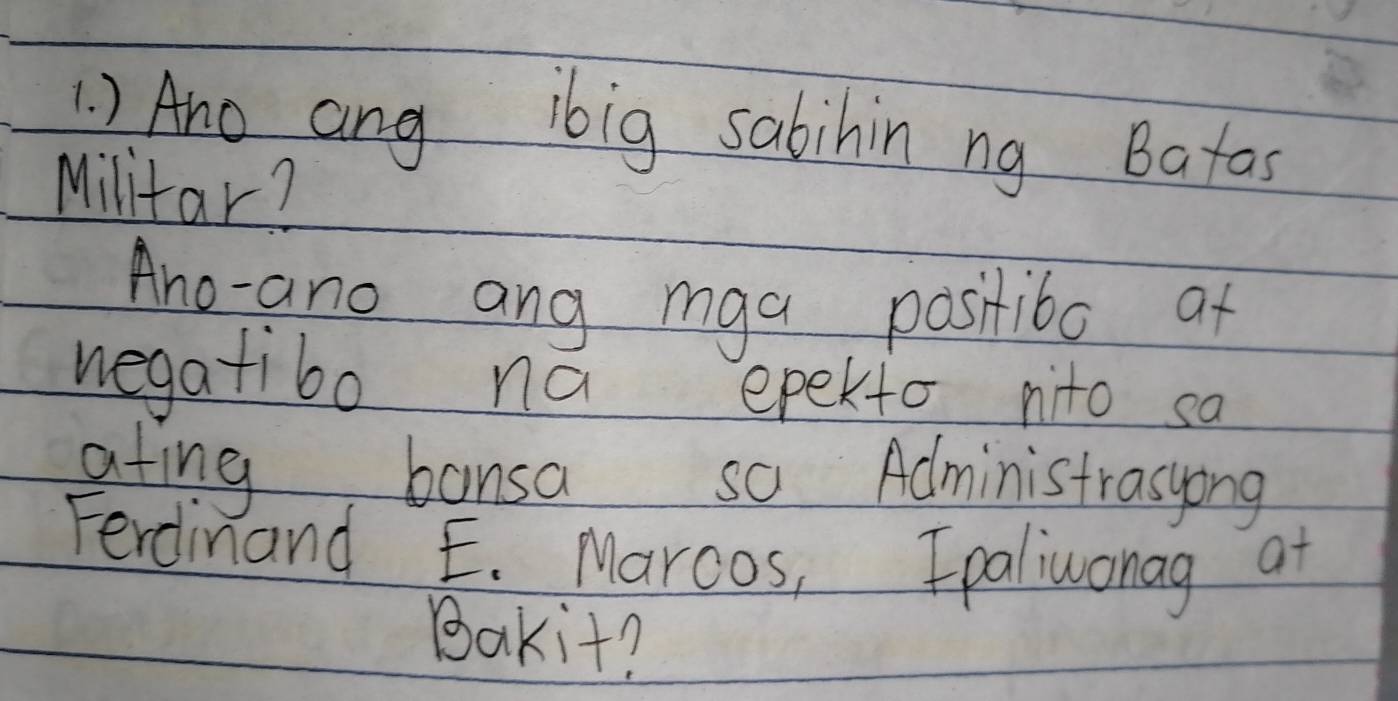 1.) Ano ang ibig sabihin ng Batas
Militar?
Ano-ano ang mga positibo at
negatibo na epekto nito sa
ating bansa sa Administrasyong
Ferdinand E. Marcos, Ipaliwanag at
Bakit?